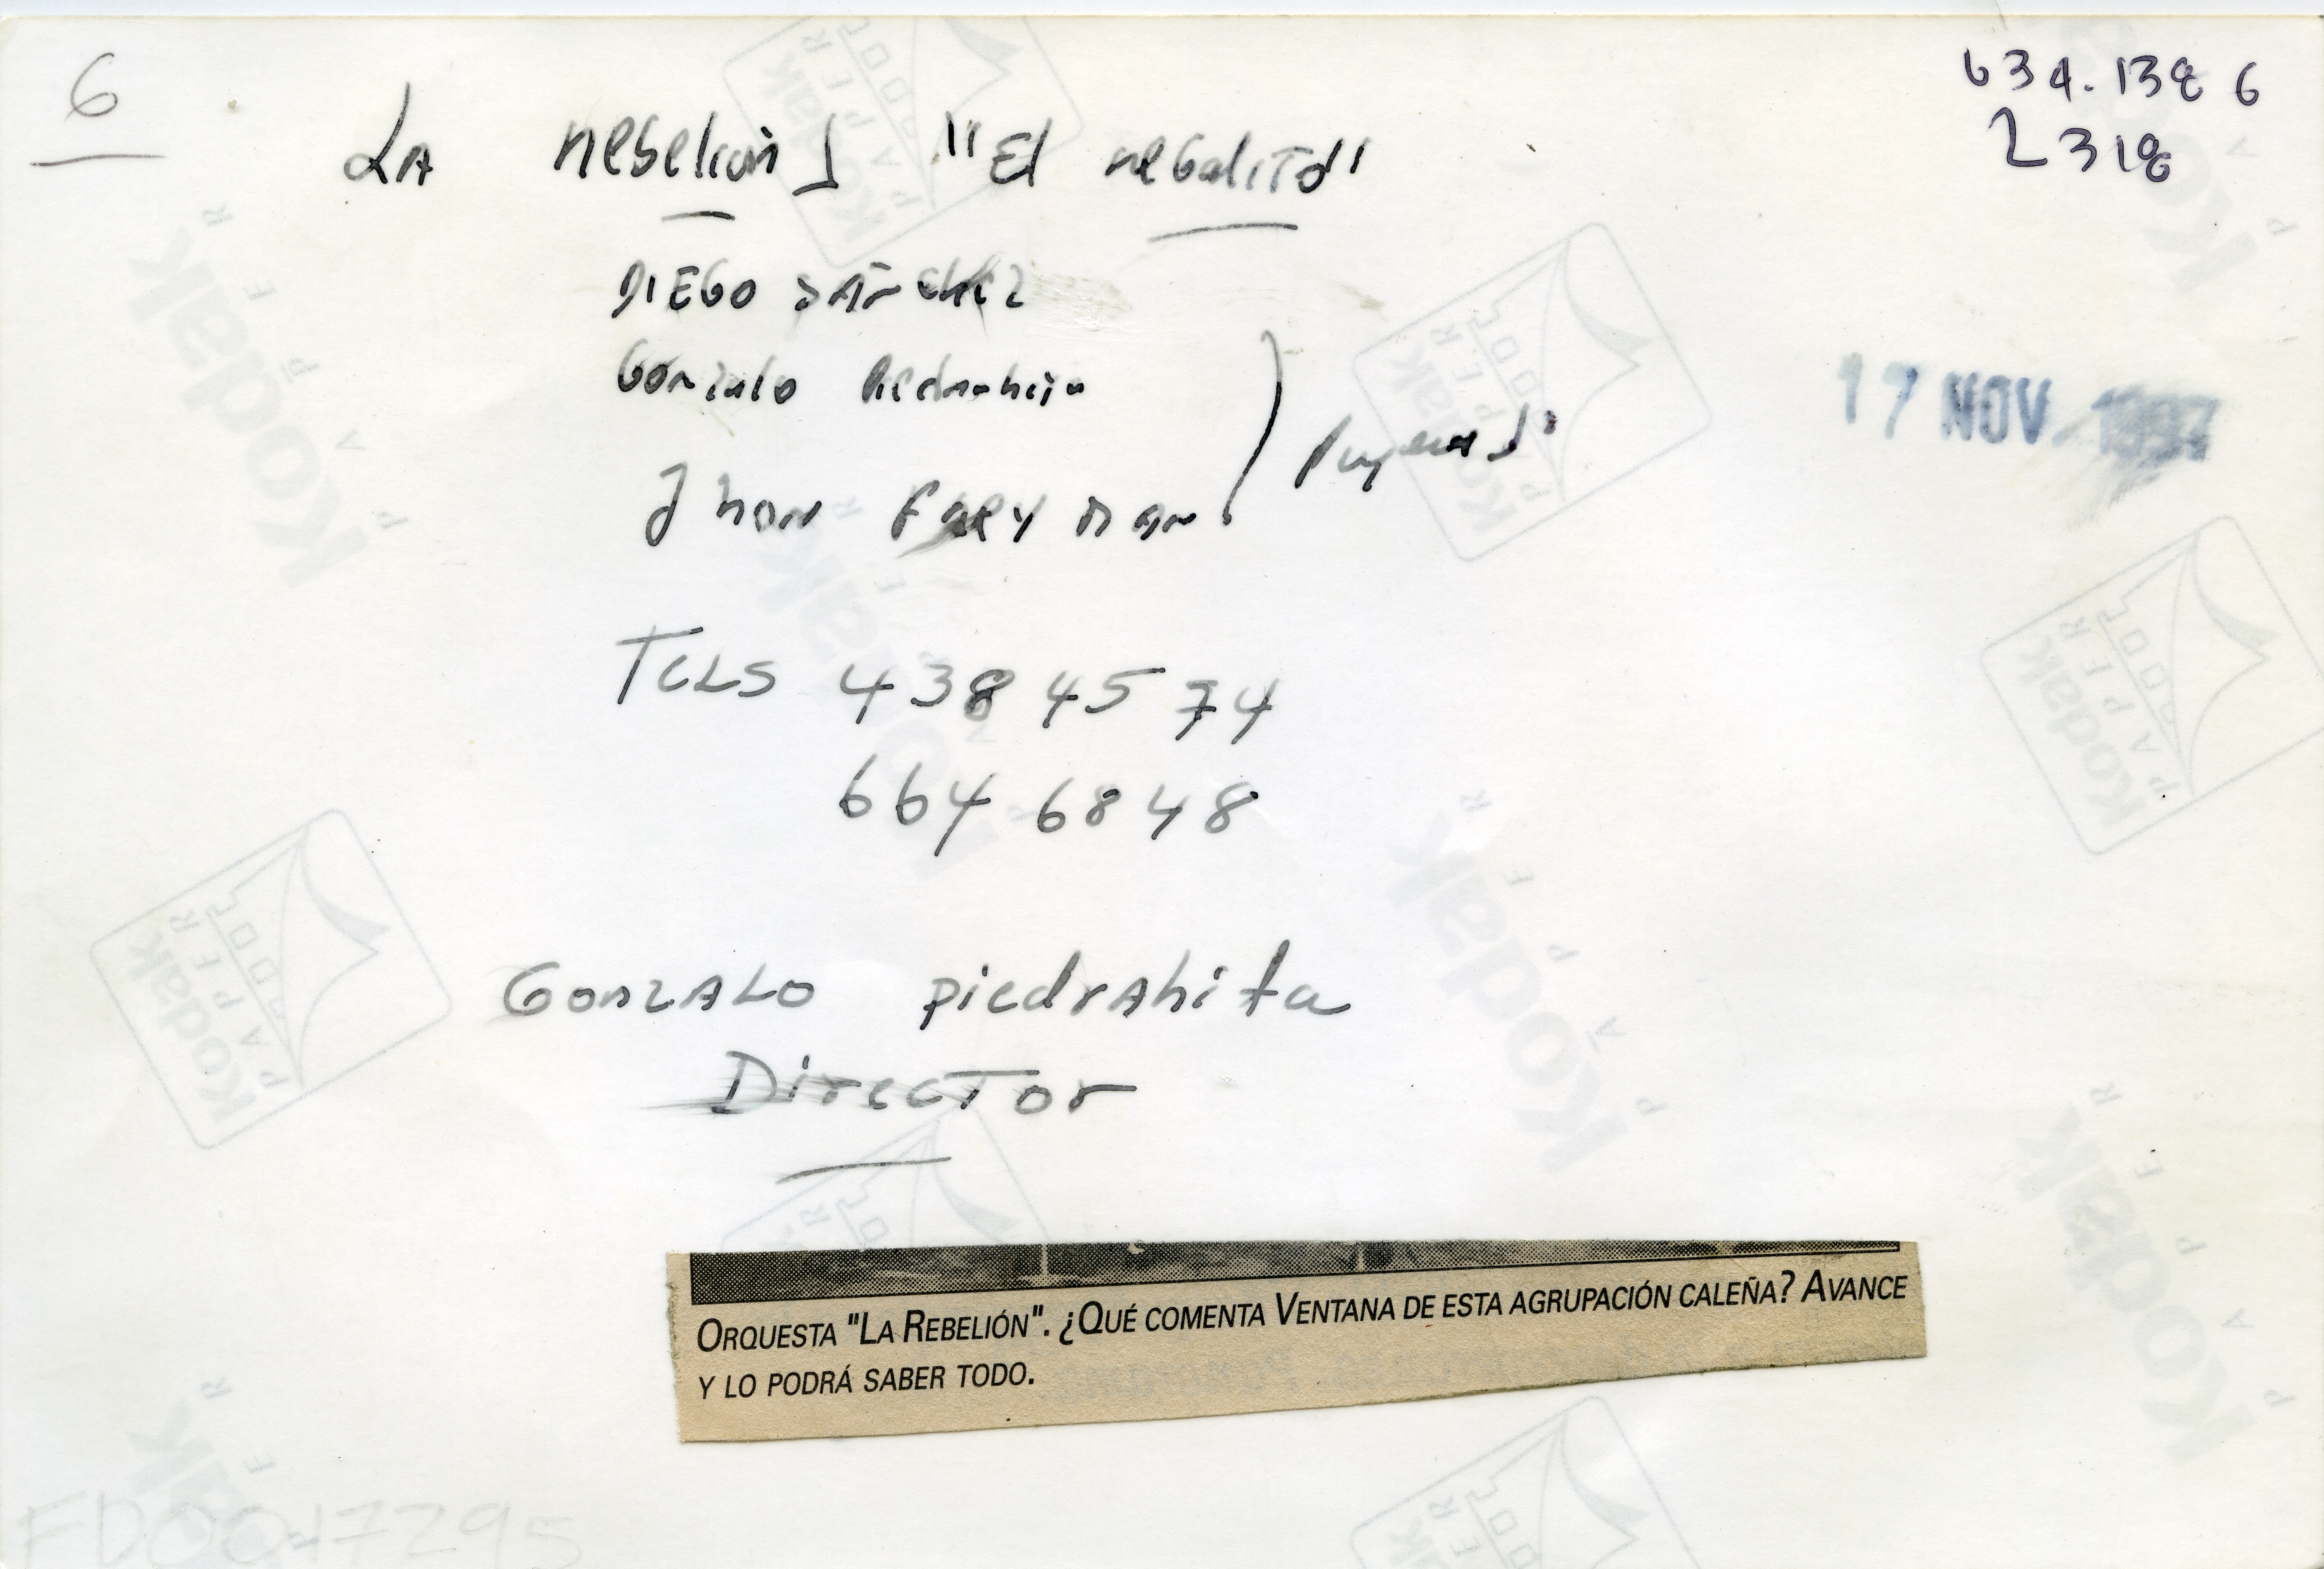 6
634.138 6
2318
LA rebelion "El regalito"
DIEGO SANCHEZ
Gonzalo Piedrahita
17 NOV. 1997
Jhon Frey
TELS 438 45 74
664 68 48
GONZALO piedrahita
Director
ORQUESTA "LA REBELIÓN". ¿QUÉ COMENTA VENTANA DE ESTA AGRUPACIÓN CALEÑA? AVANCE
Y LO PODRÁ SABER TODO.
FD0017295
Kodak
PAPER